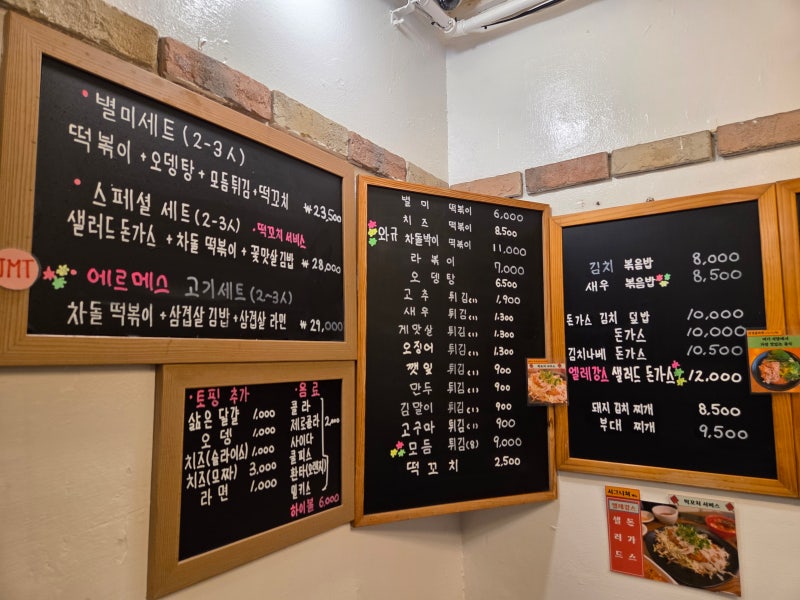 • 별미세트 (2-3人)
떡볶이 + 오뎅탕 + 모듬튀김 + 떡꼬치 ₩23,500
• 스페셜 세트 (2-3人) • 떡꼬치 서비스
샐러드 돈가스 + 차돌 떡볶이 + 꽃맛살김밥 ₩28,000
JMT
• 에르메스 고기세트 (2~3人)
차돌 떡볶이 + 삼겹살 김밥 + 삼겹살 라면 ₩29,000
• 토핑 추가
삶은 달걀 1,000
오뎅 1,000
치즈(슬라이스) 1,000
치즈(모짜) 3,000
라면 1,000
• 음료
콜라
제로콜라
사이다
쿨피스
환타(오렌지)
밀키스
2,000
하이볼 6,000
별미 떡볶이 6,000
치즈 떡볶이 8,500
와규 차돌박이 떡볶이 11,000
라볶이 7,000
오뎅탕 6,500
고추 튀김(1) 1,900
새우 튀김(1) 1,300
게맛살 튀김(1) 1,300
오징어 튀김(1) 1,300
깻잎 튀김(1) 900
만두 튀김(1) 900
김말이 튀김(1) 900
고구마 튀김(1) 900
모듬 튀김(8) 9,000
떡꼬치 2,500
김치 볶음밥 8,000
새우 볶음밥 8,500
돈가스 김치 덮밥 10,000
돈가스 10,000
김치나베 돈가스 10,500
엘레강스 샐러드 돈가스 12,000
돼지 김치 찌개 8,500
부대 찌개 9,500
시그니처 메뉴
엘레강스
샐러드
돈가스
떡꼬치 서비스